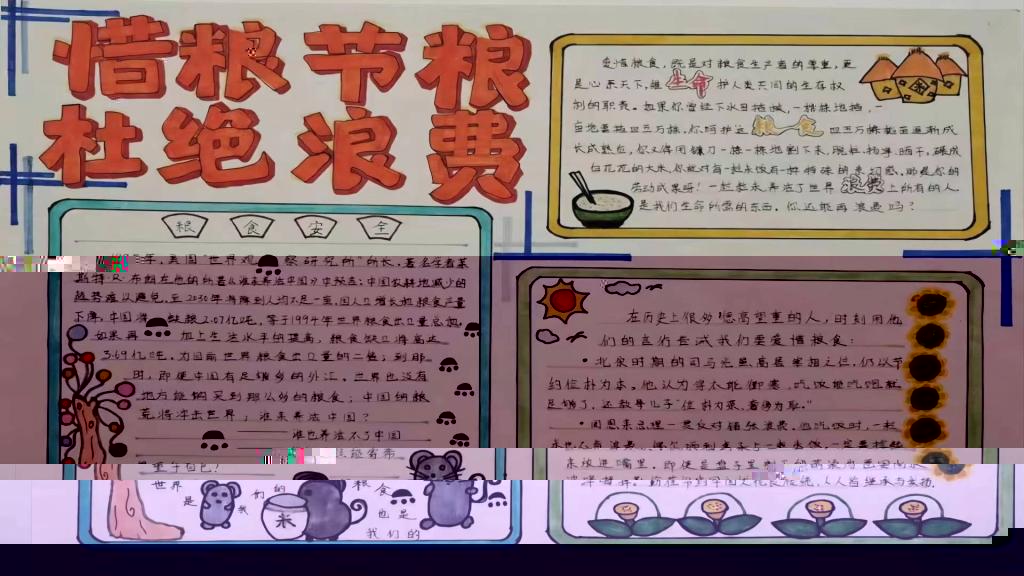 惜粮 节粮
杜绝 浪费
爱惜粮食，既是对粮食生产者的尊重，更
是心系天下，维 生命 护人类共同的生存权
利的职责。如果你曾经下水田插秧，一株株地插，一
亩地要插四五万株，你呵护这 粮食 四五万株秧苗逐渐成
长成熟后，你又得用镰刀一株一株地割下来，脱粒、扬净、晒干，碾成
白花花的大米，你就对每一粒米饭有一种特殊的亲切感，那是你的
劳动成果呀！一粒粒米养活了世界 浪费 上所有的人
是我们生命所需的东西，你还能再浪费吗？
粮 食 安 全
年，美国"世界观察研究所"所长，著名学者莱
斯特·R·布朗在他的所著《谁来养活中国》中预言：中国农耕地减少的
趋势难以避免，至2030年将降到人均不足一亩，因人口增长和粮食产量
下降，中国将 缺粮2.07亿吨，等于1994年世界粮食出口量总和，
如果再 加上生活水平的提高，粮食缺口将高达
3.69亿吨，为目前世界粮食出口量的二倍；到那
时，即使中国有足够多的外汇，世界也没有
地方能购买到那么多的粮食；中国的粮
荒将冲击世界，谁来养活中国？
谁也养活不了中国
世界 我们的 粮食
是 米 也是
我们的
在历史上很多德高望重的人，时刻用他
们的言传告诫我们要爱惜粮食：
·北宋时期的司马光虽高居宰相之位，仍以节
约俭朴为本，他认为穿衣能御寒，吃饭能吃饱就
足够了，还教导儿子"俭朴为荣，奢侈为耻。"
·周恩来总理一贯反对铺张浪费，他吃饭时，一粒
米也不肯浪费